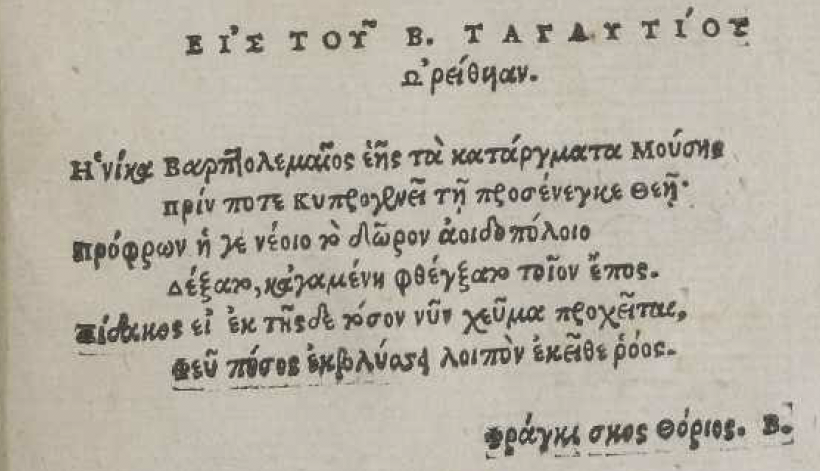 ΕΙ᾿Σ ΤΟΥ͂ Β. ΤΑΓΑΥΤΙ΄ΟΥ
Ὠρείθηαν.
Ἡνίκα Βαρπτολεμαῖος ἑῆς τὰ κατάργματα Μούσης
πρίν ποτε Κυπρογενεῖ τῇ προσένεγκε Θεῇ·
πρόφρων ἥ γε νέοιο τὸ δῶρον ἀοιδοπόλοιο
Δέξατο, κἀγαμένη φθέγξατο τοῖον ἔπος.
πίδακος εἰ ἐκ τῆσδε τόσον νῦν χεῦμα προχεῖται,
Φεῦ πόσος ἐκβλύσει λοιπὸν ἐκεῖθε ῥόος.
Φράγκισκος Θόριος. Β.